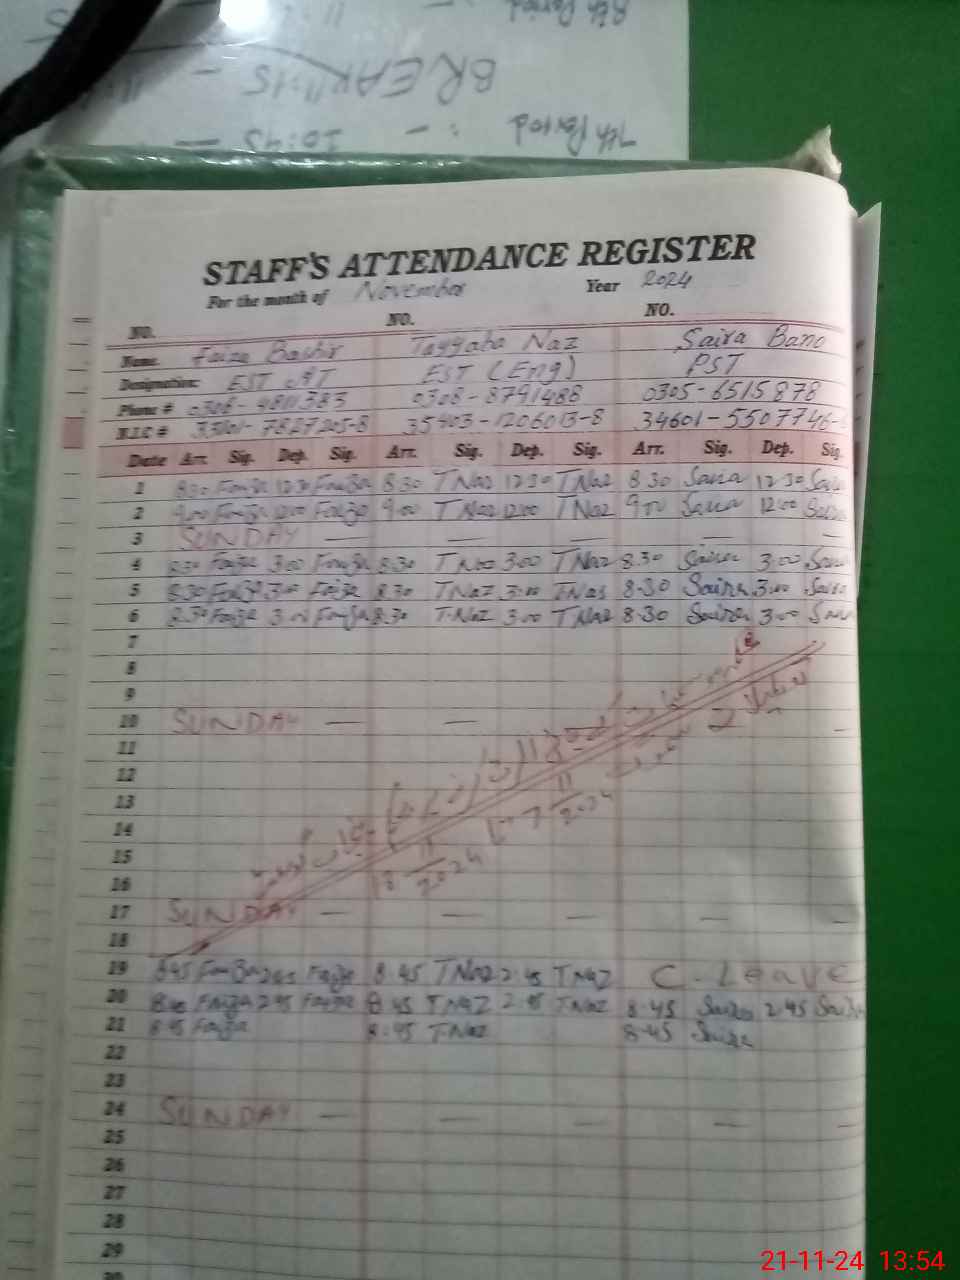 8th Period :- 11:
BREAK 11:15 -
7th Period :- 10:45 -
STAFF'S ATTENDANCE REGISTER
For the month of November Year 2024
NO. NO. NO.
Name. Faiza Bashir Tayyaba Naz Saira Bano
Designation: EST AT EST (Eng) PST
Phone # 0306-4811383 0308-8791488 0305-6515878
N.I.C # 35403-1206013-8 34601-5507746-
Date Arr. Sig. Dep. Sig. Arr. Sig. Dep. Sig. Arr. Sig. Dep. Sig.
1 8:30 Faiza 12:30 Faiza 8:30 TNaz 12:30 TNaz 8:30 Saira 12:30 Saira
2 9:00 Faiza 12:00 Faiza 9:00 TNaz 12:00 TNaz 9:00 Saira 12:00 Saira
3 SUNDAY — — — — —
4 8:30 Faiza 3:00 Faiza 8:30 TNaz 3:00 TNaz 8:30 Saira 3:00 Saira
5 8:30 Faiza 3:00 Faiza 8:30 TNaz 3:00 TNaz 8:30 Saira 3:00 Saira
6 8:30 Faiza 3:00 Faiza 8:30 T.Naz 3:00 TNaz 8:30 Saira 3:00 Saira
7
8
9
10 SUNDAY — —
11
12
13
14
15
16
17 SUNDAY — — — — —
18
18-11-2024 7-11-2024
19 8:45 Faiza 2:45 Faiza 8:45 TNaz 2:45 TNaz C-Leave
20 8:45 Faiza 2:45 Faiza 8:45 TNaz 2:45 TNaz 8:45 Saira 2:45 Saira
21 8:45 Faiza 8:45 T.Naz 8:45 Saira
22
23
24 SUNDAY — — — — —
25
26
27
28
29
30
21-11-24 13:54